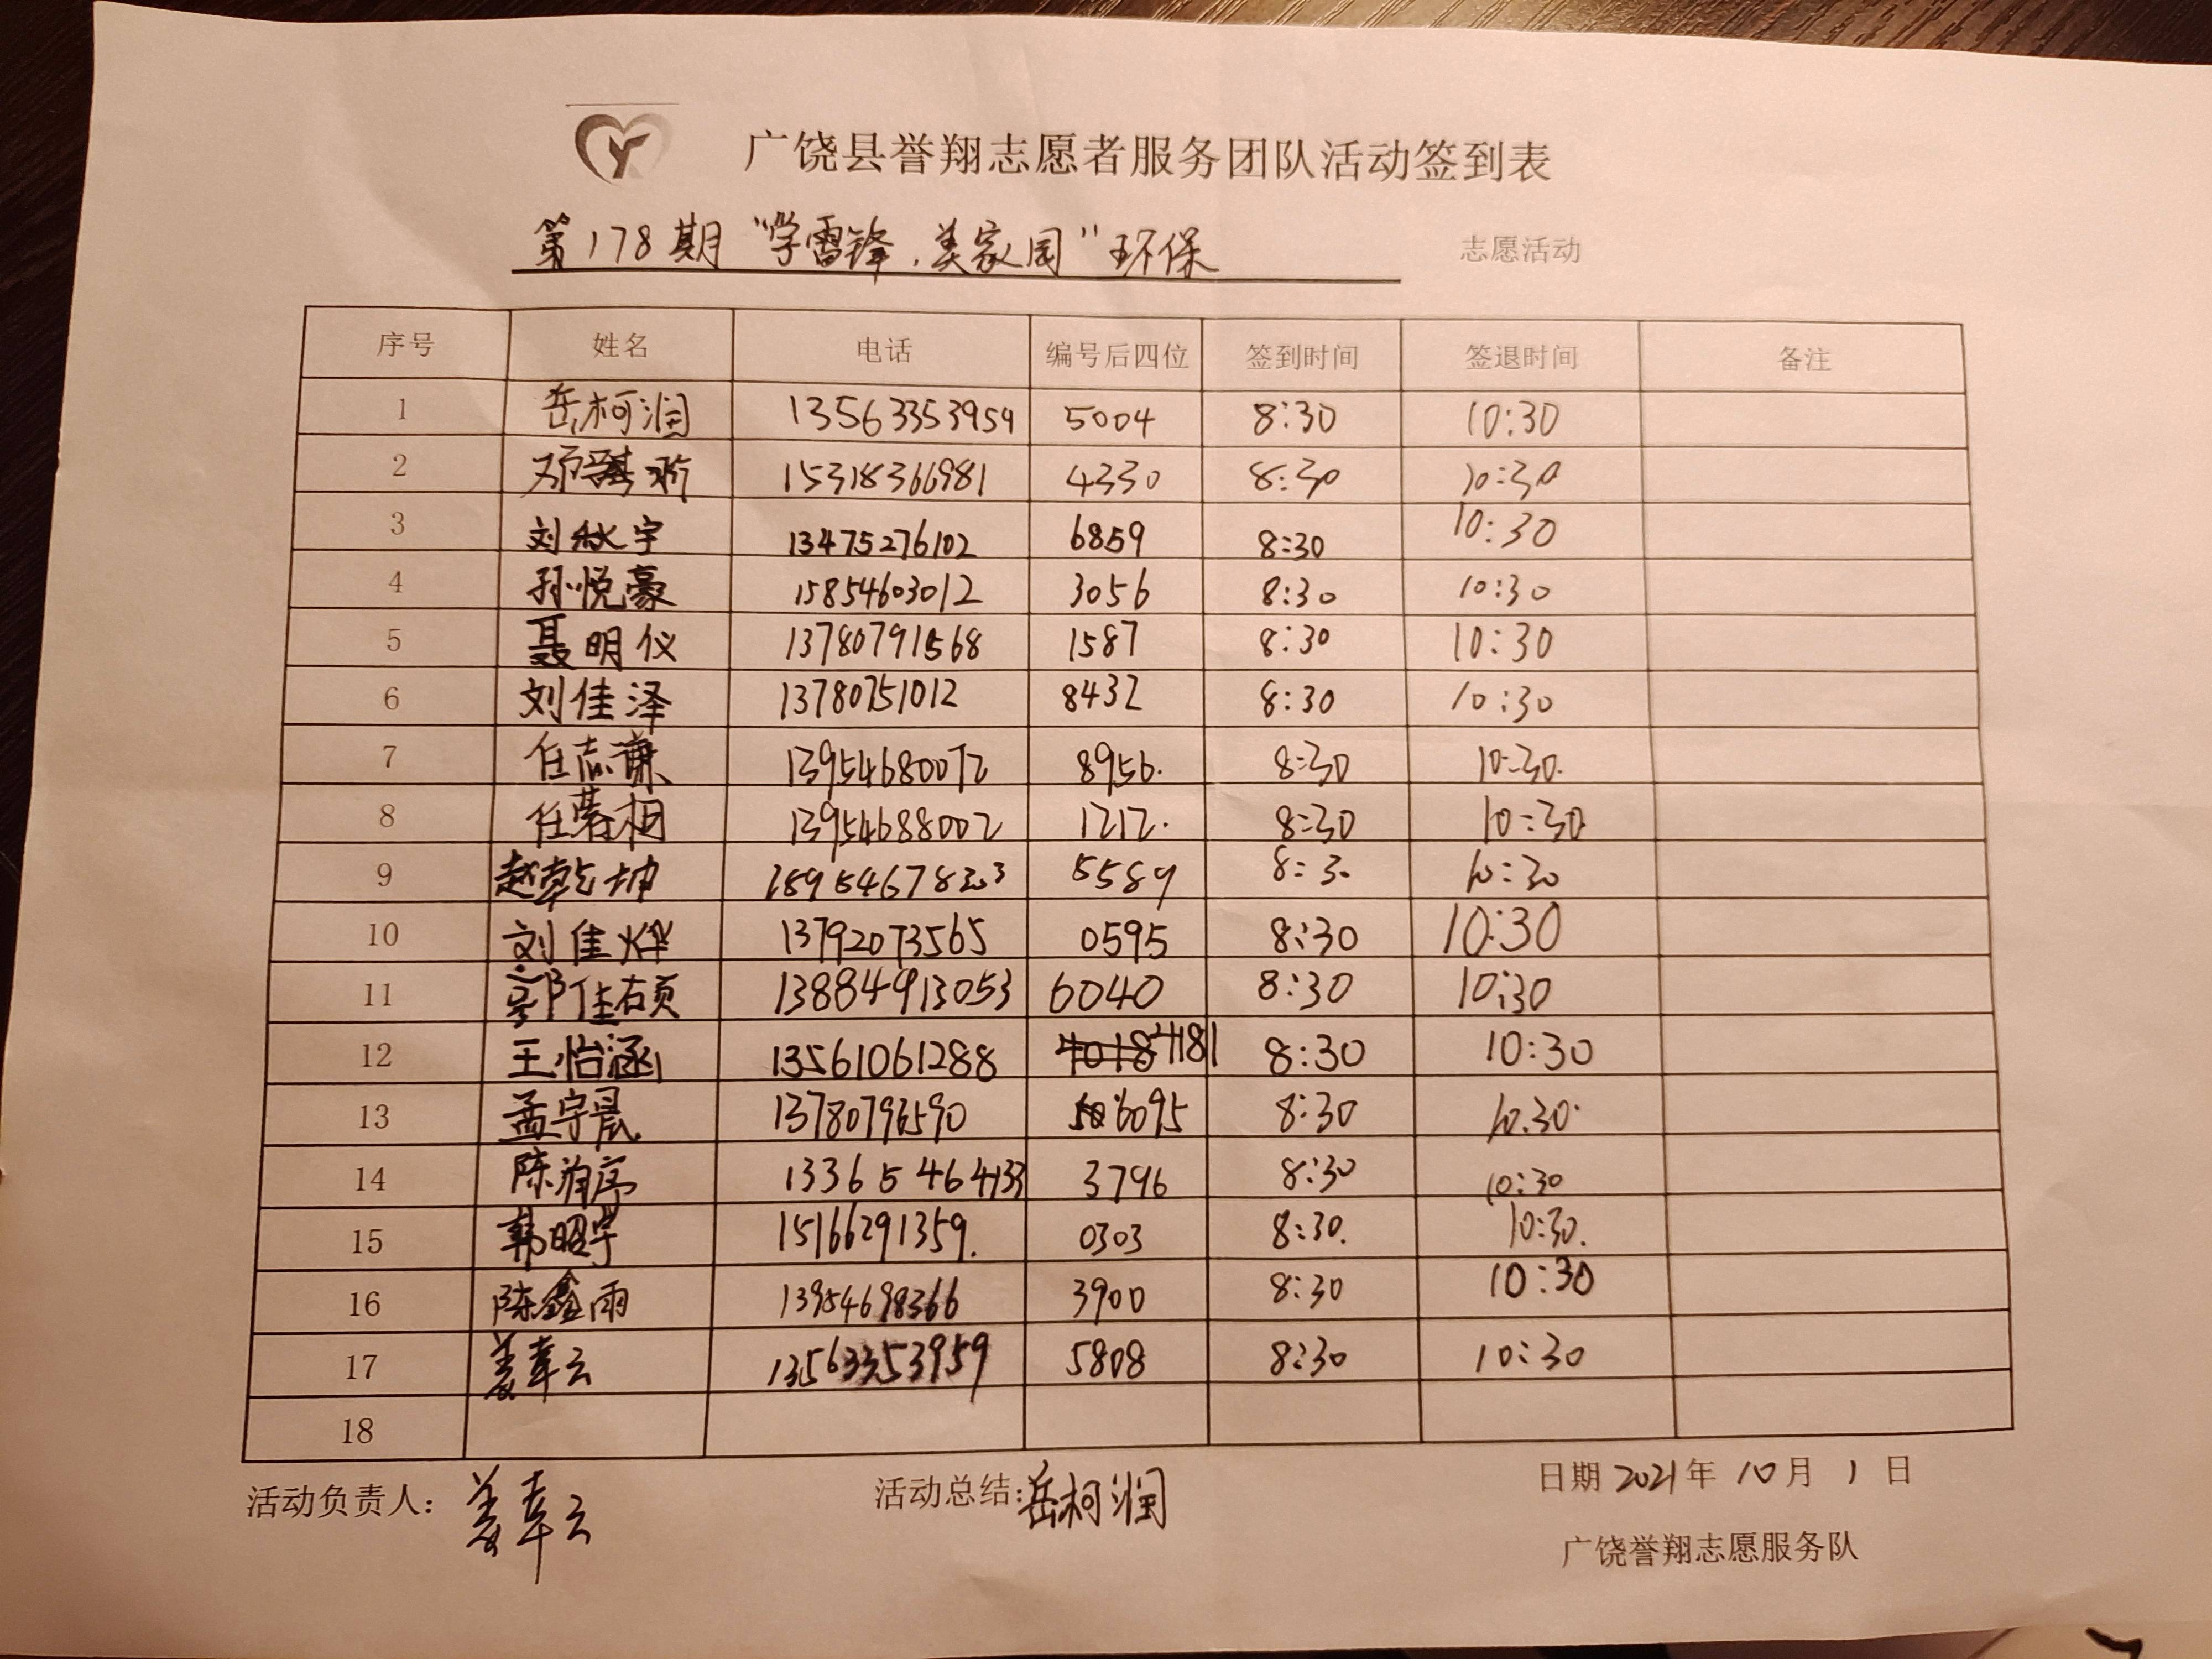 广饶县誉翔志愿者服务团队活动签到表
第178期“学雷锋.美家园”环保 志愿活动
序号 姓名 电话 编号后四位 签到时间 签退时间 备注
1 岳柯润 13563353959 5004 8:30 10:30
2 15318366981 4330 8:30 10:30
3 刘秋宇 13475276102 6859 8:30 10:30
4 孙悦豪 15854603012 3056 8:30 10:30
5 聂明仪 13780791568 1587 8:30 10:30
6 刘佳泽 13780751012 8432 8:30 10:30
7 任志谦 13954680072 8956. 8:30 10:30.
8 任蓦相 13954688002 1212. 8:30 10:30
9 赵乾坤 5589 8:30 10:30
10 刘佳烨 13792073565 0595 8:30 10:30
11 郭佳硕 13884913053 6040 8:30 10:30
12 王怡涵 13561061288 4181 8:30 10:30
13 孟宇晨 13780796590 6095 8:30 10:30
14 陈润亭 13365464133 3796 8:30 10:30
15 韩昭宇 15166291359. 0303 8:30. 10:30.
16 陈鑫雨 13954698366 3900 8:30 10:30
17 姜幸云 13563353959 5808 8:30 10:30
18
活动负责人: 姜幸云 活动总结: 岳柯润 日期 2021年 10月 1日
广饶誉翔志愿服务队